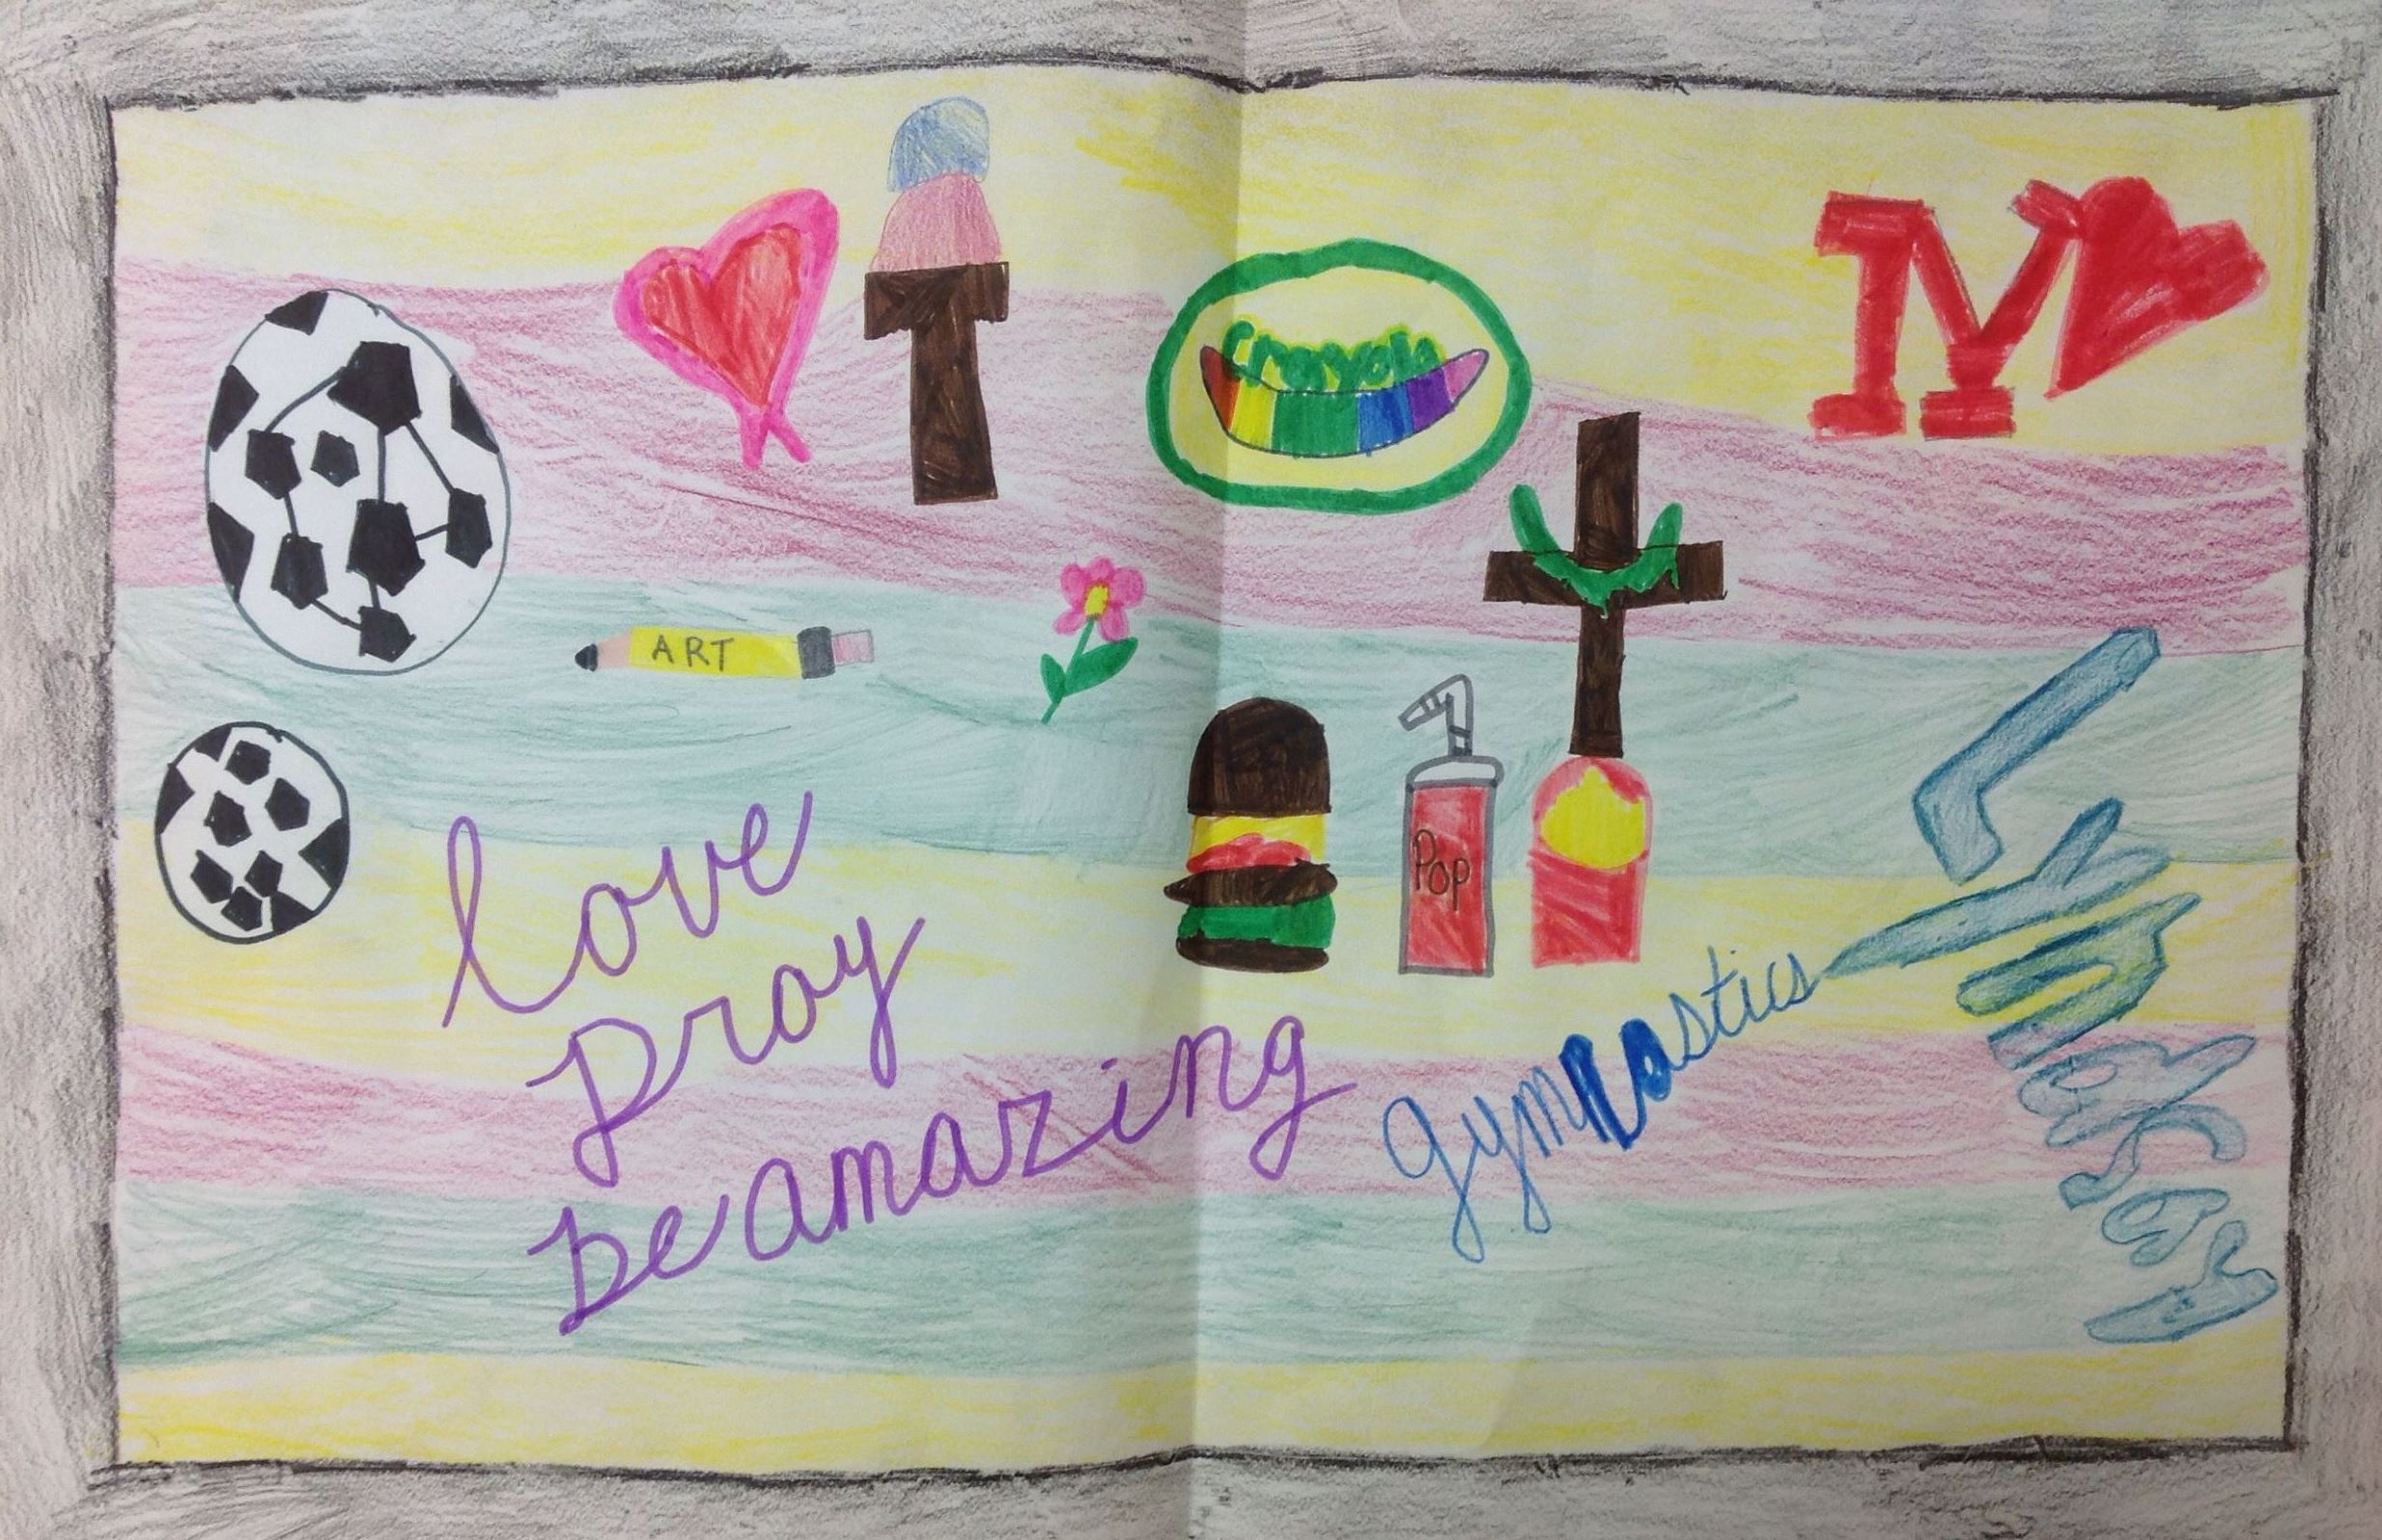 M
Crayola
ART
Pop
love
Pray
be amazing
gymnastics
Lindsay